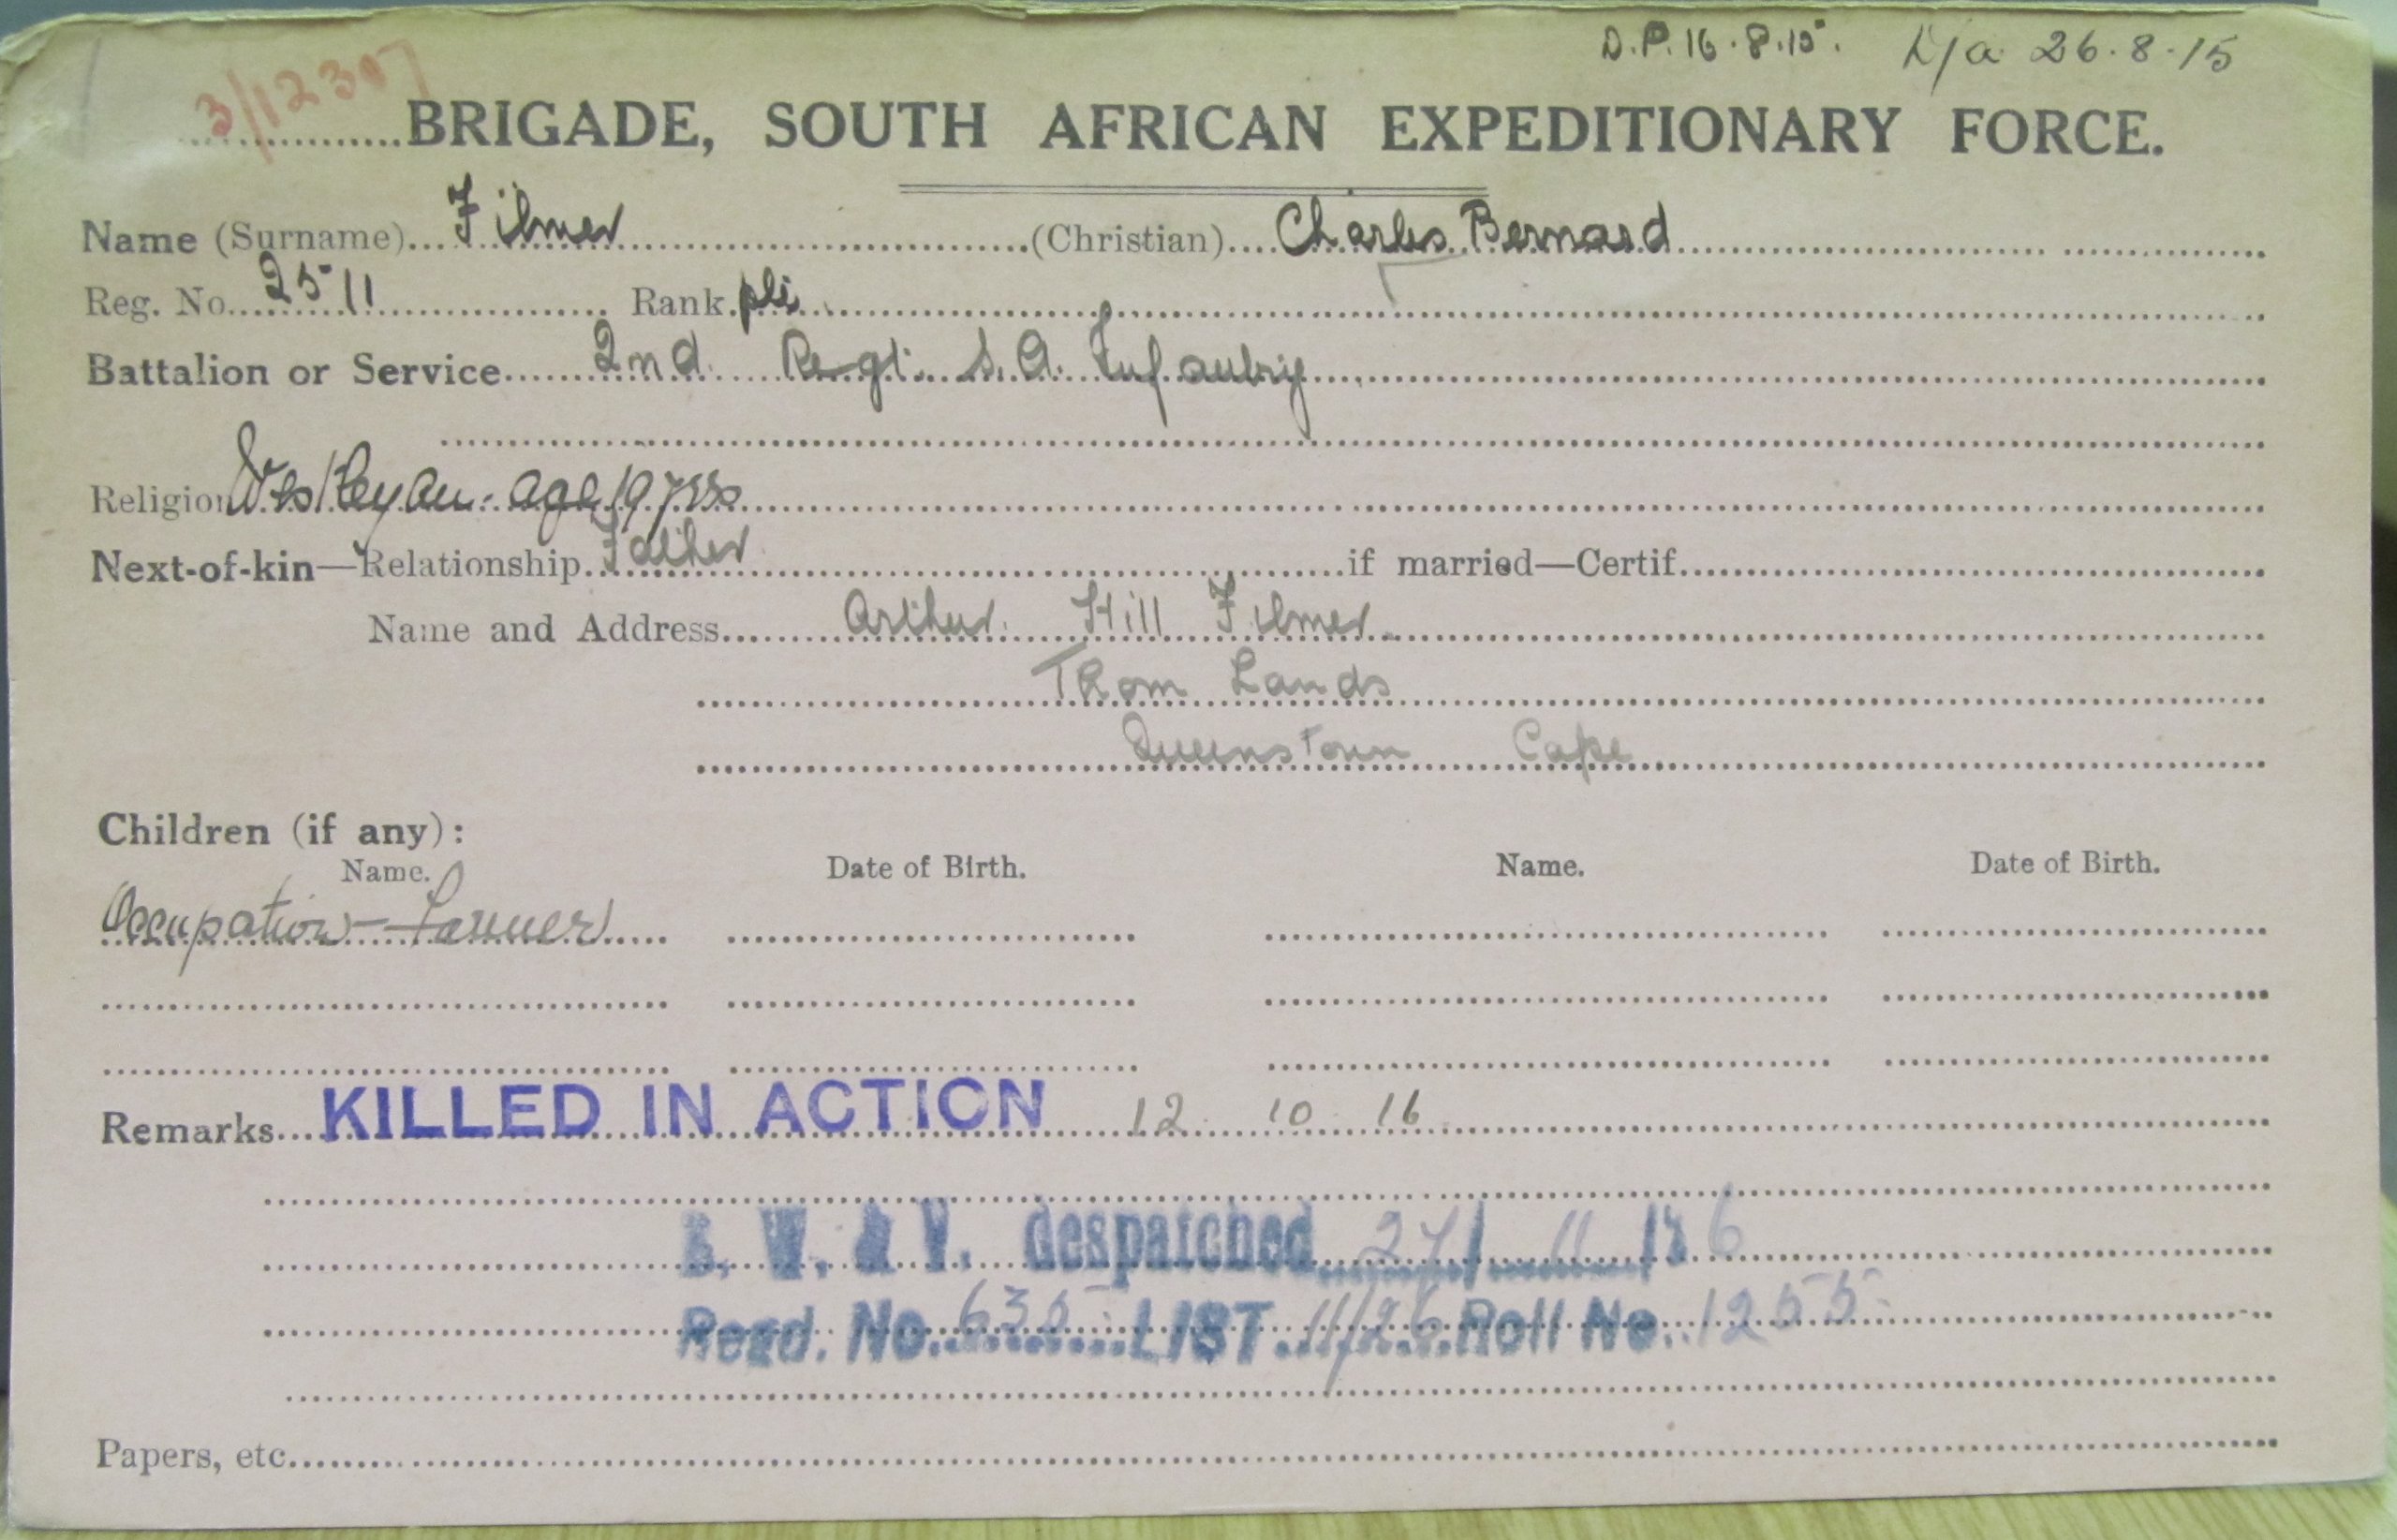 D.P. 16.8.15. L/a 26.8.15
3/12307
BRIGADE, SOUTH AFRICAN EXPEDITIONARY FORCE.
Name (Surname) Filmer (Christian) Charles Bernard
Reg. No. 2511 Rank pte
Battalion or Service 2nd. Regt. S.A. Infantry
Religion Wesleyan. age 19 yrs
Next-of-kin—Relationship Father if married—Certif.
Name and Address Arthur Hill Filmer
Thorn Lands
Queenstown Cape
Children (if any):
Name. Date of Birth. Name. Date of Birth.
Occupation - Farmer
Remarks KILLED IN ACTION 12 10 16
despatched 27/11/16
Regd. No. 635 LIST 11/26 Roll No. 1255
Papers, etc.